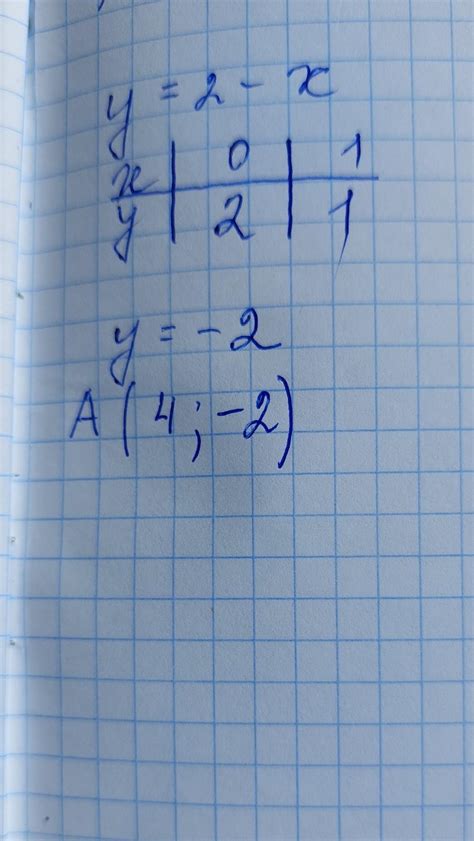 y = 2 - x
x | 0 | 1
y | 2 | 1
y = -2
A (4; -2)